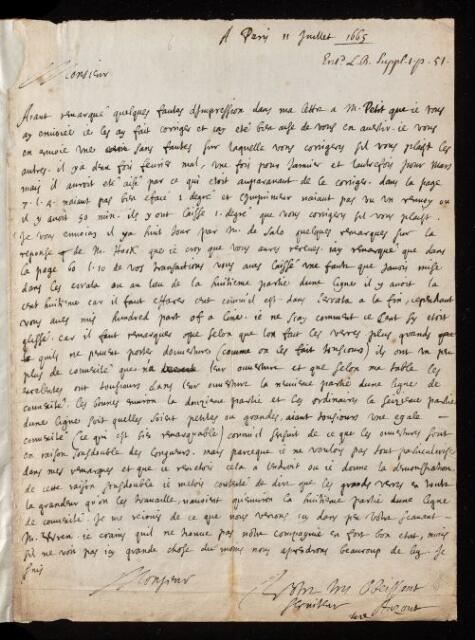 A Paris 11 Juillet 1665
Entd L.B. Suppl. 1. p. 51.
Monsieur
Aiant remarqué quelques fautes d'Impression dans ma lettre a M. Petit que ie vous
ay envoiée ie les ay fait corriger et iay eté bien aise de vous en avertir. ie vous
en envoie une sans fautes sur laquelle vous corrigerez s'il vous plaist les
autres. il y a deux fois fevrier mal, une fois pour Janvier et l'autrefois pour Mars
mais il auroit eté aisé par ce qui etoit auparavant de le corriger. dans la page
7. l. 4. naiant pas bien efacé 1 degré et l'Imprimeur naiant pas vu un renvoy ou
il y avoit 50 min. ils y ont laissé 1. degré que vous corrigerez s'il vous plaist.
Je vous envoiay il y a huit Jour par M. de Salo quelques remarques sur la
reponse de M. Hook que ie croy que vous aurez receues. iay remarqué que dans
la page 60 l. 10 de vos Transactions vous avez laissé une faute que Javois mise
dans les errata ou au lieu de la huitieme partie dune ligne il y avoit la
cent huitieme car il faut effacer cent comme il est dans l'errata a la fin, cependant
vous avez mis hundred part of a line. ie ne scay comment ce Cent sy etoit
glissé. car il faut remarquer que selon que lon fait les verres plus grands
quils ne peuvent porter douverture (comme on les fait tousiours) ils ont un peu
plus de convexité que leur ouverture et que selon ma table les
excellents ont tousiours dans leur ouverture la neuvieme partie dune ligne de
convexité. les bonnes environ la douzieme partie et les ordinaires la seizieme partie
dune ligne soit quelles soient petites ou grandes, aiant tousiours une egale
convexité (ce qui est bien remarquable) comme il sensuit de ce que les ouvertures sont
en raison sousdouble des longueurs. mais parceque ie ne voulois pas tout particulariser
dans mes remarques et que ie remettois cela a lendroit ou ie donne la demonstration
de cette raison sousdouble ie metois contenté de dire que les grands verres en toute
la grandeur qu'on les travaille, navoient quenviron la huitieme partie dune ligne
de convexité. Je me rejouis de ce que nous verrons icy dans peu vôtre scavant
M. Wren. ie crains quil ne trouve pas nôtre compagnie en fort bon etat, mais
sil ne voit pas icy grande chose du moins nous aprendrons beaucoup de luy. Je
suis
Monsieur
Vôtre tres Obeissant
serviteur Auzout